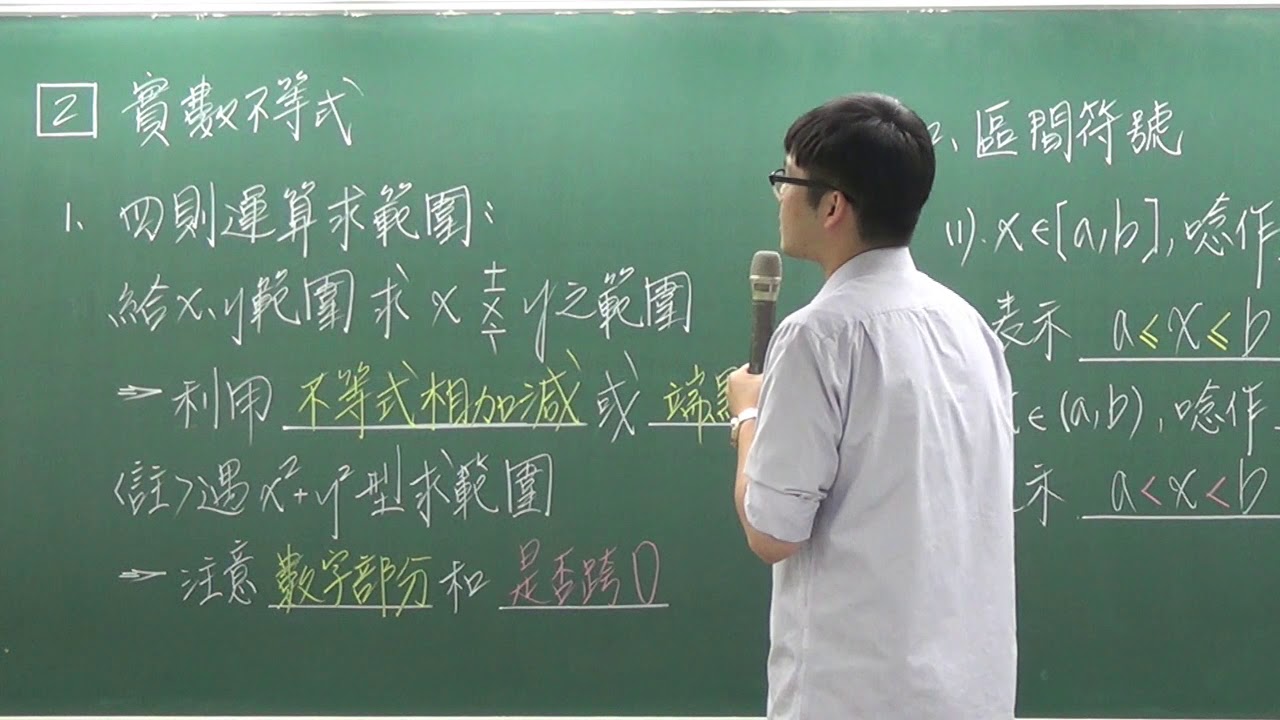 2 實數不等式
1、四則運算求範圍：
給x、y範圍求 x ± × ÷ y之範圍
⇒ 利用 不等式相加減 或 端
〈註〉遇x²+y²型求範圍
⇒ 注意 數字部分 和 是否跨0
、區間符號
(1). x∈[a,b], 唸作
表示 a≤x≤b
∈(a,b), 唸作
示 a<x<b